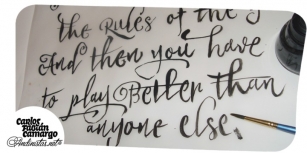 the Rules of the
And then you have
to play Better than
anyone else.
carlos
Fabián
camargo
Andinistas.net